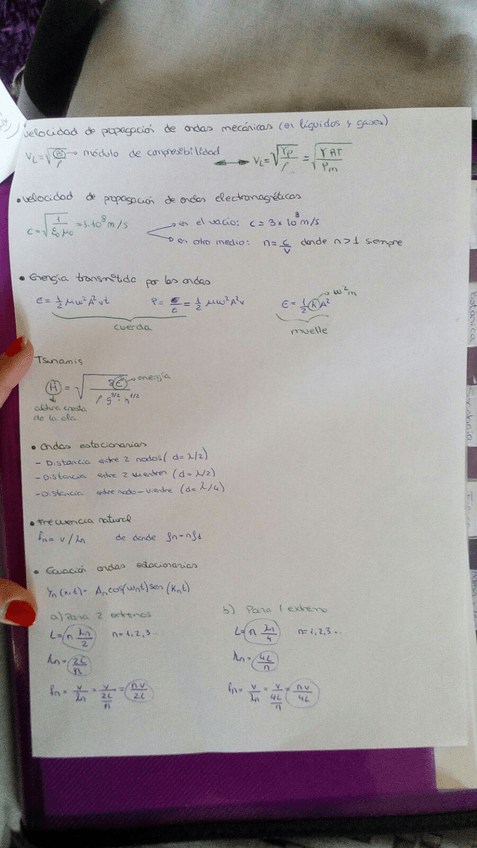 velocidad de propagación de ondas mecánicas (en líquidos y gases)
V_L = √(B/ρ) → módulo de compresibilidad ↔ V_L = √(γP/ρ) = √(γRT/P_m)
• velocidad de propagación de ondas electromagnéticas
c = √(1/ε₀μ₀) = 3·10⁸ m/s
en el vacío: c = 3 × 10⁸ m/s
en otro medio: n = c/v donde n > 1 siempre
• Energía transmitida por las ondas
w²m
E = ½ μw²A²vt P = E/t = ½ μw²A²v E = ½ k A²
cuerda muelle
Tsunamis
energía
altura cresta
de la ola
• Ondas estacionarias
- Distancia entre 2 nodos (d = λ/2)
- Distancia entre 2 vientres (d = λ/2)
- Distancia entre nodo - vientre (d = λ/4)
• Frecuencia natural
fn = v/λn de donde fn = nf₁
• Ecuación ondas estacionarias
Yn (x,t) = An cos(wnt) sen (Knt)
a) Para 2 extremos b) Para 1 extremo
L = n λn/2 n = 1, 2, 3... L = n λn/4 n = 1, 2, 3...
λn = 2L/n λn = 4L/n
fn = v/λn = v/(2L/n) = nv/2L fn = v/λn = v/(4L/n) = nv/4L